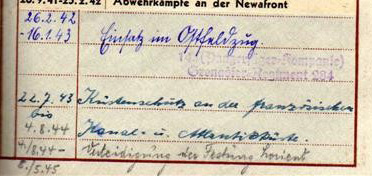 28.9.41-25.2.42 Abwehrkämpfe an der Newafront
26.2.42
-16.1.43 Einsatz im Ostfeldzug.
14.(Panzerjäger-Kompanie)
Grenadier-Regiment 284
22.7.43 Küstenschutz an der französischen
bis
4.8.44 Kanal- u. Atlantikküste.
4/8.44- Verteidigung der Festung Lorient
8./5.45